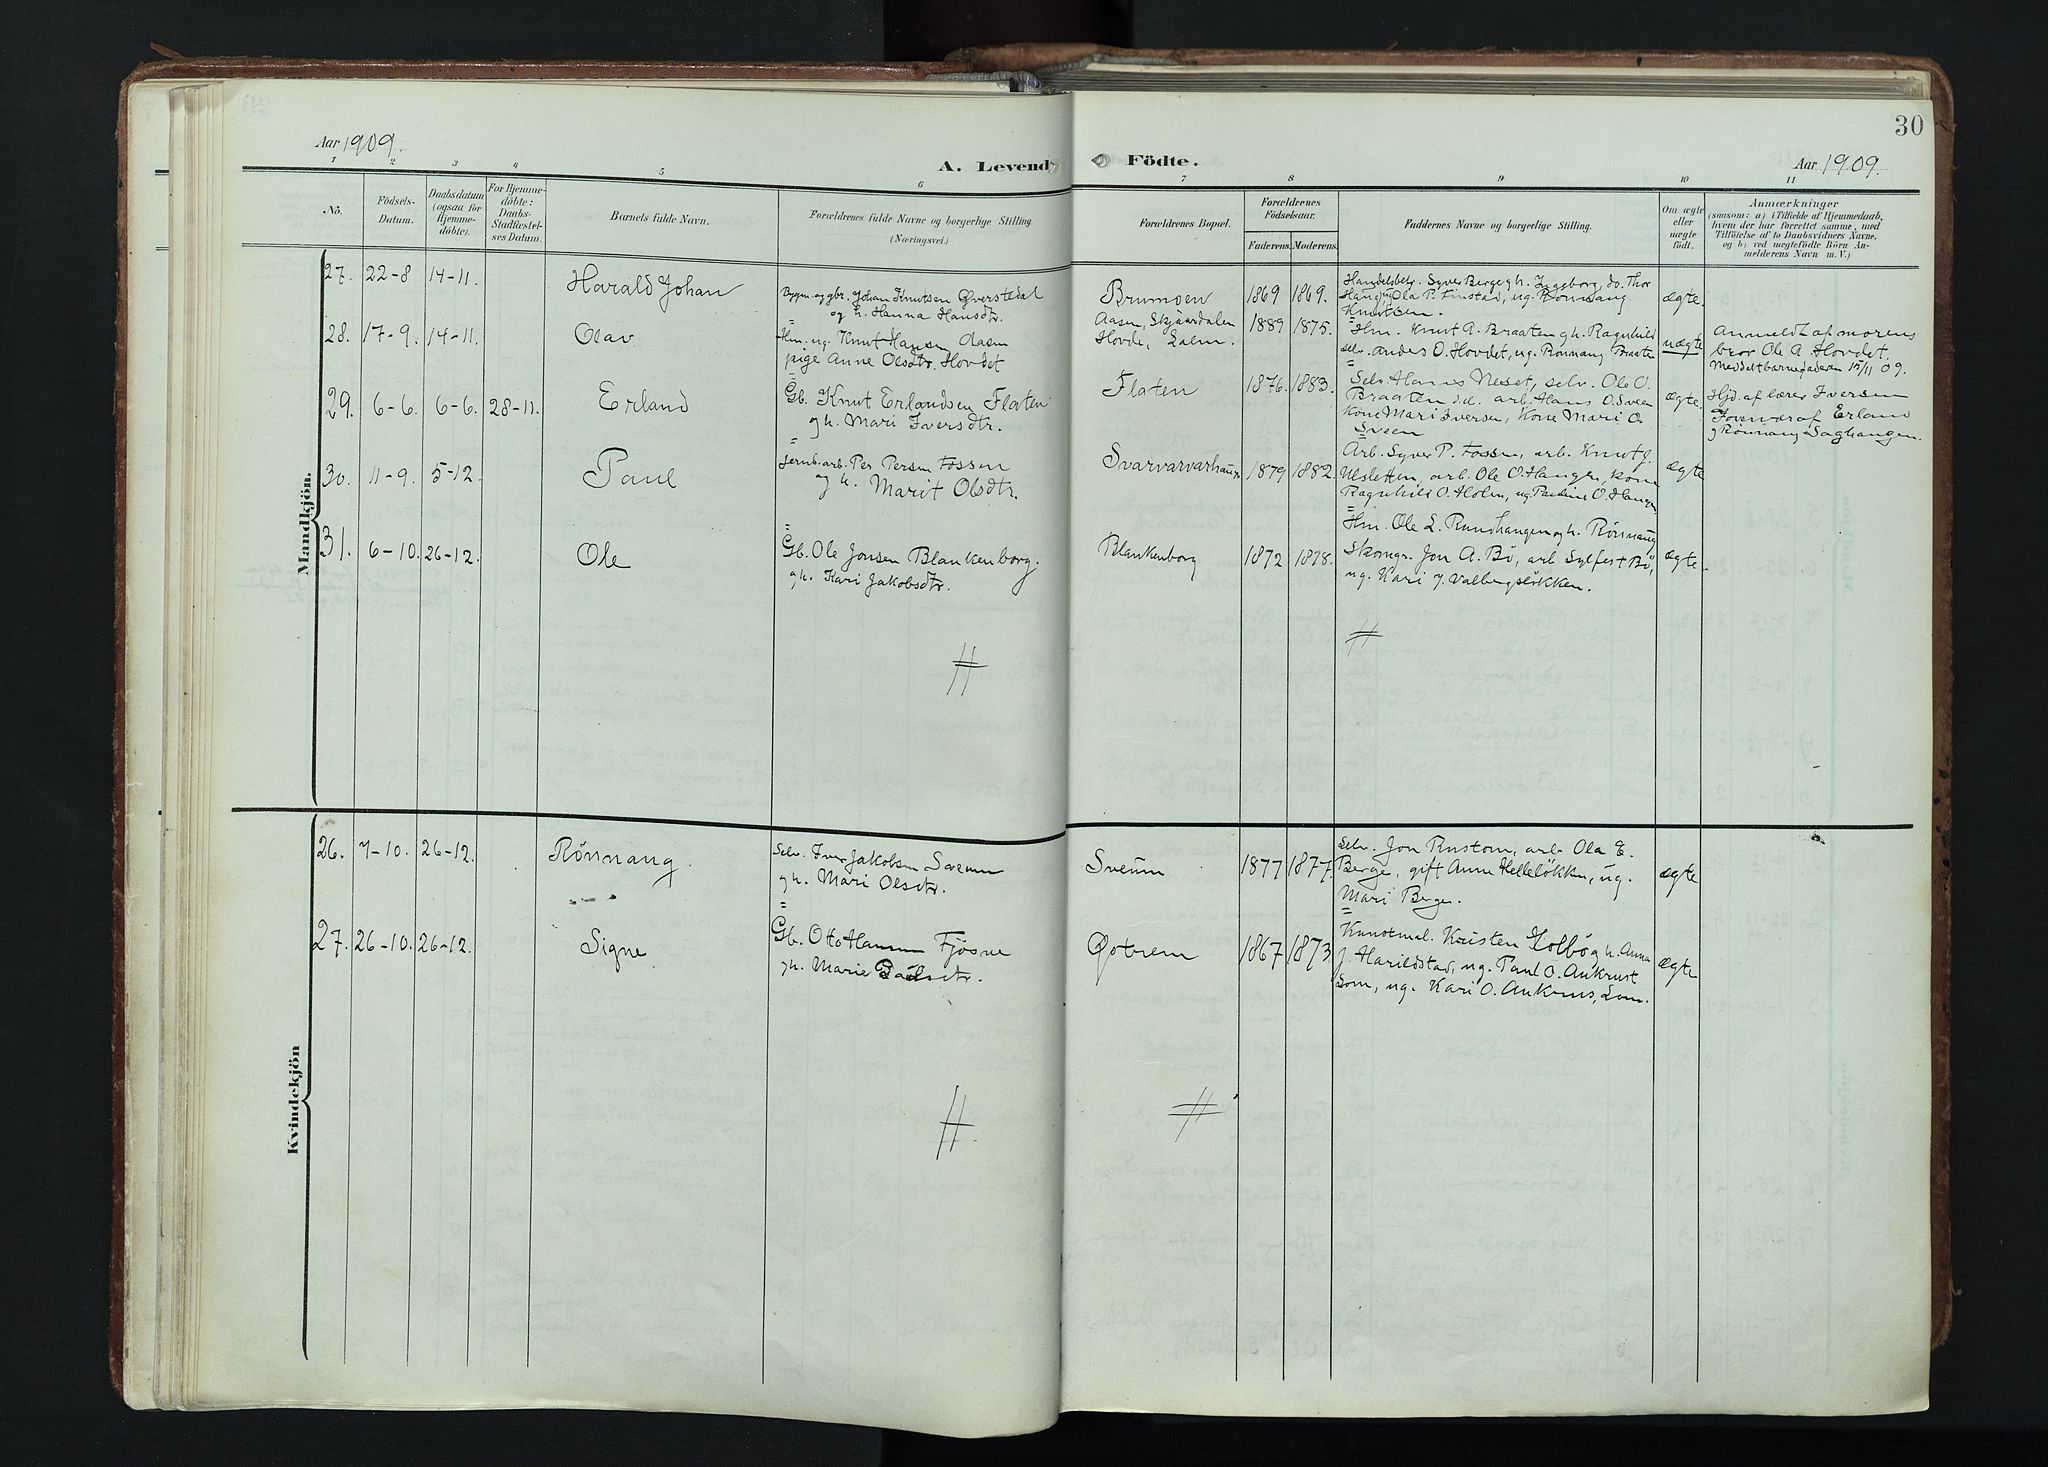 30
Aar 1909.
A. Levende Födte.
Aar 1909.
1 2 3 4 5 6 7 8 9 10 11
No.
Födsels-Datum.
Daabsdatum (ogsaa for Hjemmedöbte).
For Hjemmedöbte: Daabs-Stadfæstelses Datum.
Barnets fulde Navn.
Forældrenes fulde Navne og borgerlige Stilling.
(Næringsvei.)
Forældrenes Bopæl.
Forældrenes Födselsaar.
Faderens. Moderens.
Faddernes Navne og borgerlige Stilling.
Om ægte eller uægte födt.
Anmærkninger
(saasom: a) i Tilfælde af Hjemmedaab, hvem der har forrettet samme, med Tilföielse af to Daabsvidners Navne. og b) ved uægtefödte Börn Anmelderens Navn m. V.)
Mandkjön.
27. 22-8 14-11. Harald Johan
Byggm. og gbr. Johan Knutsen Øverstedal
og h. Hanna Hansdtr.
Brumoen 1869 1869.
Handelsbetj. Syver Berge g h. Ingeborg, do. Thor
Haugen, Ola P. Finstad, ug. Rönnaug
Knutsen.
ægte.
28. 17-9. 14-11. Olav
Hm. ug. Knut Hansen Aasen
pige Anne Olsdtr. Hovdet
Aasen, Skjaardalen
Hovde, Lalm.
1889 1875.
Hm. Knut A. Braaten g h. Ragnhild
selv. Anders O. Hovdet, ug. Rønnaug Braate
uægte
Anmeldt af morens
bror Ole A. Hovdet.
Meddelt barnefaderen 15/11 09.
29. 6-6. 6-6. 28-11. Erland
Gb. Knut Erlandsen Flaten
g h. Mari Iversdtr.
Flaten 1876. 1883.
Selv. Hans Neset, selv. Ole O.
Braaten s.d. arb. Hans O. Sveen
Kone Mari Iversen, Kone Mari O.
Sveen
ægte.
Hjd. af lærer Iversen
I overvær af Erland
g Rønnaug Saghaugen.
30. 11-9. 5-12. Paul
Jernb. arb. Per Persen Fossen
og h. Marit Olsdtr.
Svarvarvarhaugen 1879 1882.
Arb. Syver P. Fossen, arb. Knut J.
Ulsletten, arb. Ole O. Haugen, kone
Ragnhild O. Holen, ug. Pauline O. Haugen
ægte
31. 6-10. 26-12. Ole
Gb. Ole Jonsen Blankenborg.
g h. Kari Jakobsdtr.
Blankenborg 1872 1878.
Hm. Ole L. Rundhaugen og h. Rønnaug
Skomgr. Jon A. Bö, arb Sylfest Bö,
ug. Kari J. Valbergsløkken.
ægte.
Kvindekjön
26. 7-10. 26-12. Rönnaug.
Selv. Iver Jakobsen Sveum
g h. Mari Olsdtr.
Sveum 1877 1877.
Selv. Jon Rustom, arb. Ola E.
Berge, gift Anne Helleløkken, ug.
Mari Berge.
ægte
27. 26-10. 26-12. Signe
Gb. Otto Hansen Fjösne
g h. Marie Paulsdtr.
Øotrem 1867 1873
Kunstmal. Kristen Holbø g h. Anna
J. Harildstad, ug. Paul O. Aukrust
Lom, ug. Kari O. Aukrust, Lom.
ægte